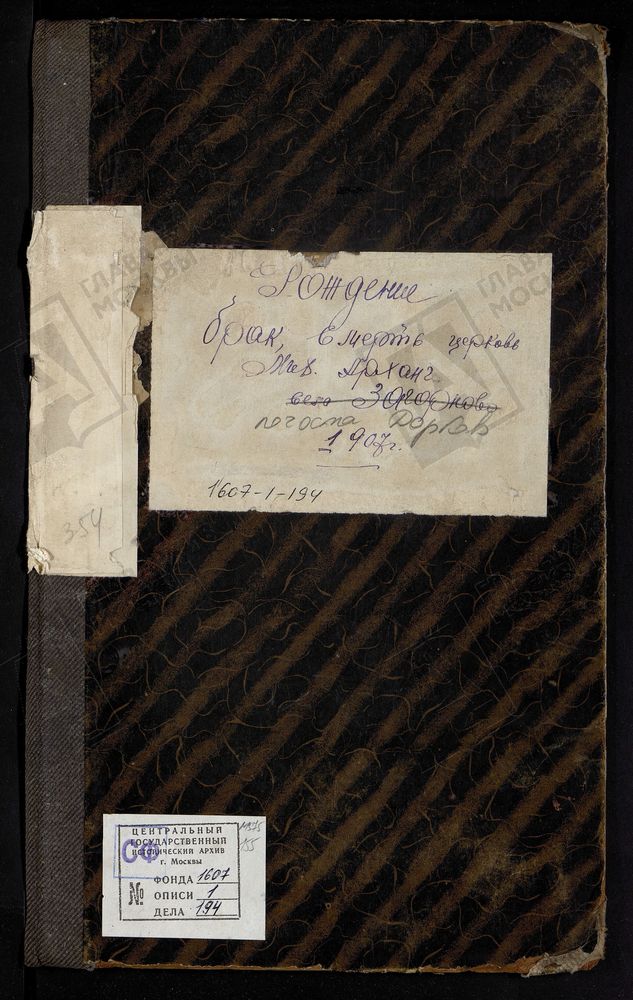 Рождение
брак, Смерть церковь
Мих. Арханг.
села
погоста Дорков
1907г.
1607-1-194
354
ЦЕНТРАЛЬНЫЙ
ГОСУДАРСТВЕННЫЙ
ИСТОРИЧЕСКИЙ АРХИВ
г. Москвы
СФ
№
ФОНДА 1607
ОПИСИ 1
ДЕЛА 194
ГЛАВ
МОСКВЫ